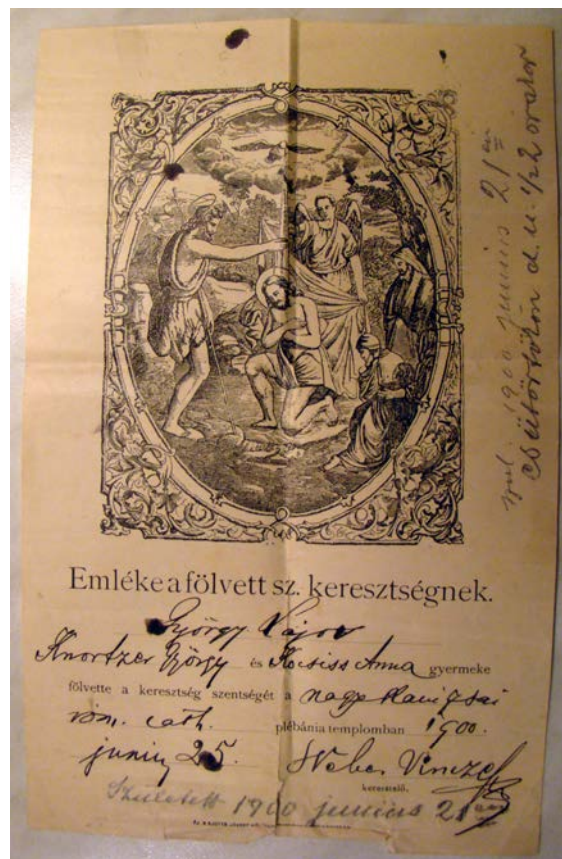 szül. 1900 junius 21 én
csütörtökön d. u. 1/2 2 órakor
Emléke a fölvett sz. keresztségnek.
György Lajos
Knortzer György és Kocsiss Anna gyermeke
fölvette a keresztség szentségét a nagykanizsai
róm. cath. plébánia templomban 1900.
junius 25. Weber Vincze
keresztelő.
Született 1900 junius 21 én